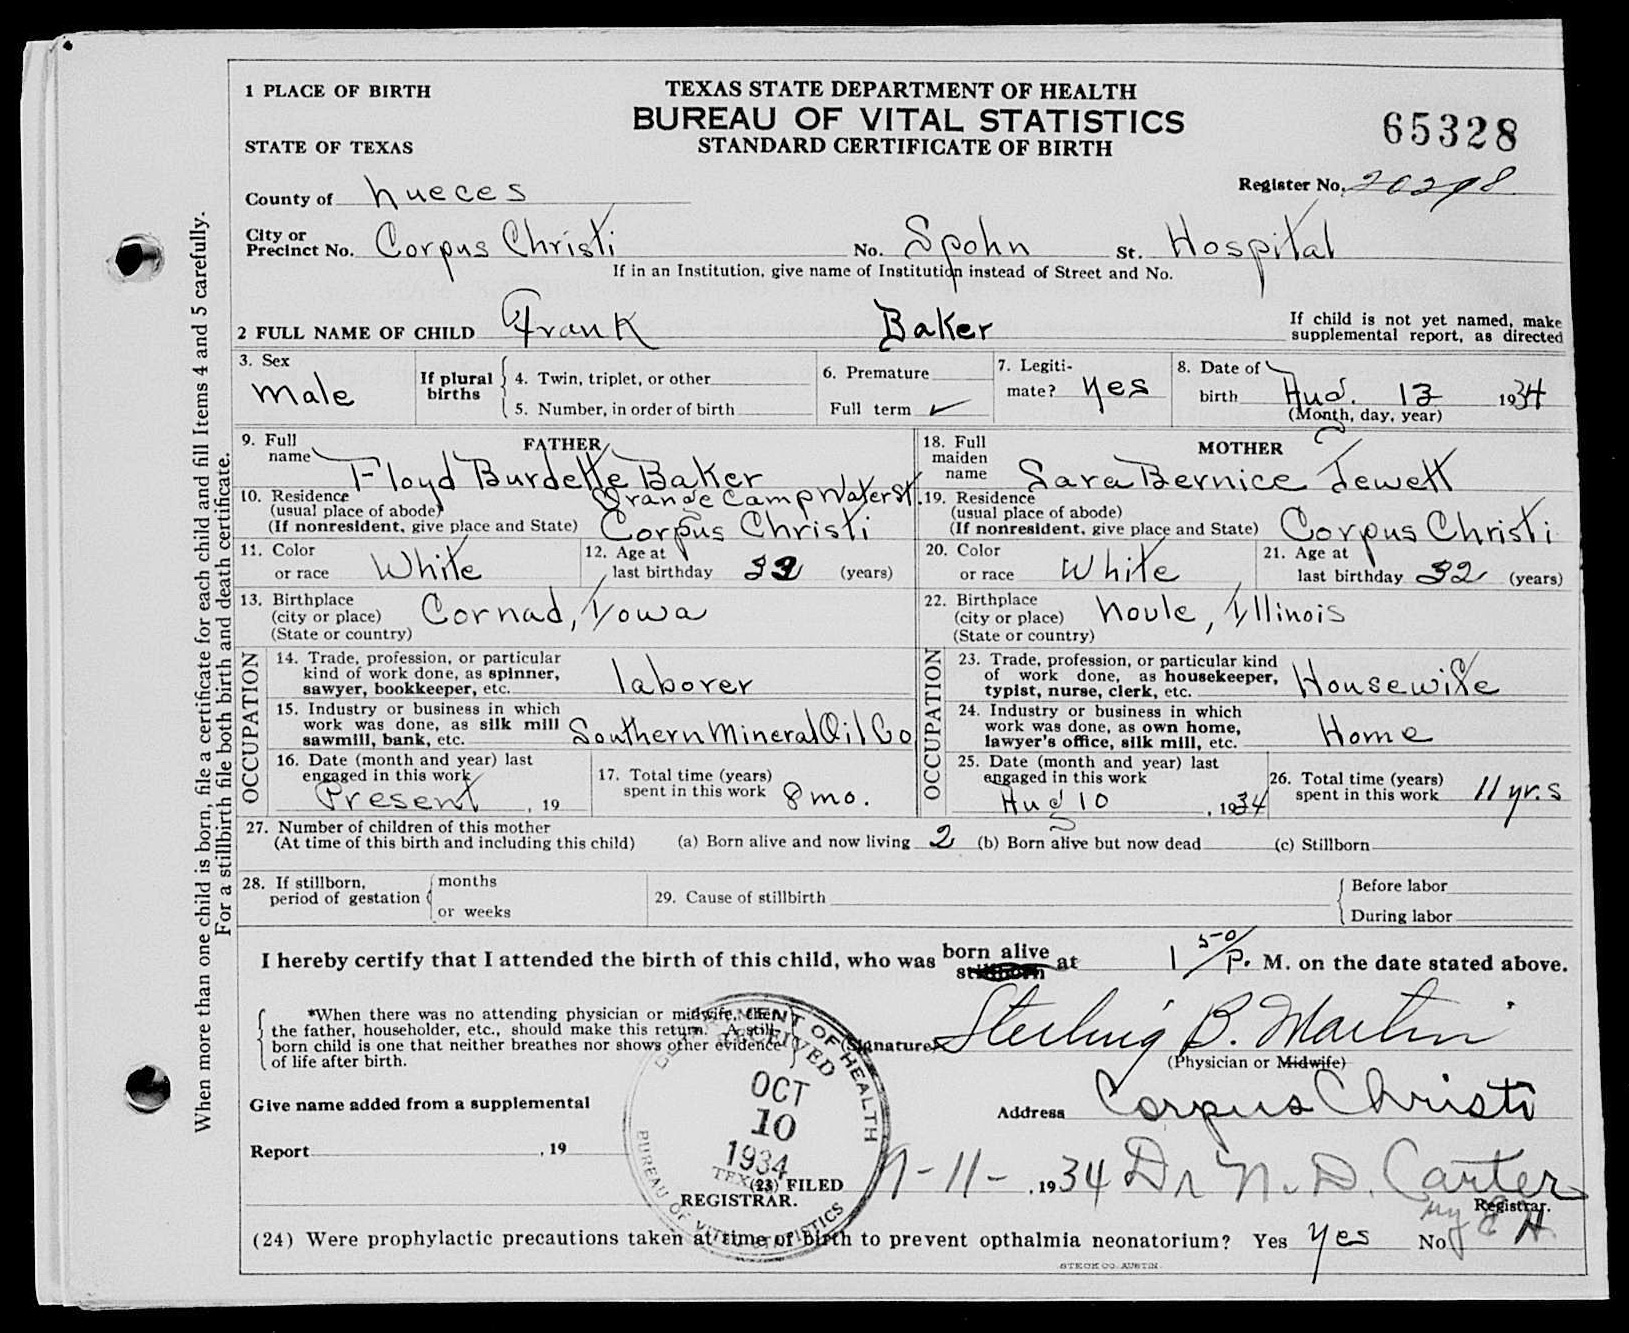 1 PLACE OF BIRTH
TEXAS STATE DEPARTMENT OF HEALTH
BUREAU OF VITAL STATISTICS
STANDARD CERTIFICATE OF BIRTH
65328
STATE OF TEXAS
Register No.
County of Nueces
City or Precinct No. Corpus Christi No. Spohn St. Hospital
If in an Institution, give name of Institution instead of Street and No.
2 FULL NAME OF CHILD Frank Baker
If child is not yet named, make supplemental report, as directed
3. Sex Male
If plural births
4. Twin, triplet, or other
5. Number, in order of birth
6. Premature
Full term ✓
7. Legitimate? Yes
8. Date of birth Aug. 13 1934
(Month, day, year)
FATHER
9. Full name Floyd Burdette Baker
10. Residence (usual place of abode) (If nonresident, give place and State) Orange Camp Water St. Corpus Christi
11. Color or race White
12. Age at last birthday 33 (years)
13. Birthplace (city or place) (State or country) Cornad, Iowa
OCCUPATION
14. Trade, profession, or particular kind of work done, as spinner, sawyer, bookkeeper, etc. laborer
15. Industry or business in which work was done, as silk mill sawmill, bank, etc. Southern Mineral Oil Co
16. Date (month and year) last engaged in this work Present, 19
17. Total time (years) spent in this work 8 mo.
MOTHER
18. Full maiden name Sara Bernice Jewett
19. Residence (usual place of abode) (If nonresident, give place and State) Corpus Christi
20. Color or race White
21. Age at last birthday 32 (years)
22. Birthplace (city or place) (State or country) Noule, Illinois
OCCUPATION
23. Trade, profession, or particular kind of work done, as housekeeper, typist, nurse, clerk, etc. Housewife
24. Industry or business in which work was done, as own home, lawyer's office, silk mill, etc. Home
25. Date (month and year) last engaged in this work Aug 10, 1934
26. Total time (years) spent in this work 11 yr.s
27. Number of children of this mother
(At time of this birth and including this child) (a) Born alive and now living 2 (b) Born alive but now dead (c) Stillborn
28. If stillborn, period of gestation months or weeks
29. Cause of stillbirth
Before labor
During labor
I hereby certify that I attended the birth of this child, who was born alive stillborn at 1 50/P. M. on the date stated above.
*When there was no attending physician or midwife, then
the father, householder, etc., should make this return. A still-
born child is one that neither breathes nor shows other evidence
of life after birth.
(Signature) Sterling B. Martin
(Physician or Midwife)
Give name added from a supplemental
Address Corpus Christi
Report , 19
DEPARTMENT OF HEALTH
RECEIVED
OCT
10
1934
TEXAS
BUREAU OF VITAL STATISTICS
(23) FILED 9-11-, 1934 Dr N. D. Carter
REGISTRAR. Registrar.
(24) Were prophylactic precautions taken at time of birth to prevent opthalmia neonatorium? Yes Yes No
STECK CO. AUSTIN.
When more than one child is born, file a certificate for each child and fill Items 4 and 5 carefully.
For a stillbirth file both birth and death certificate.